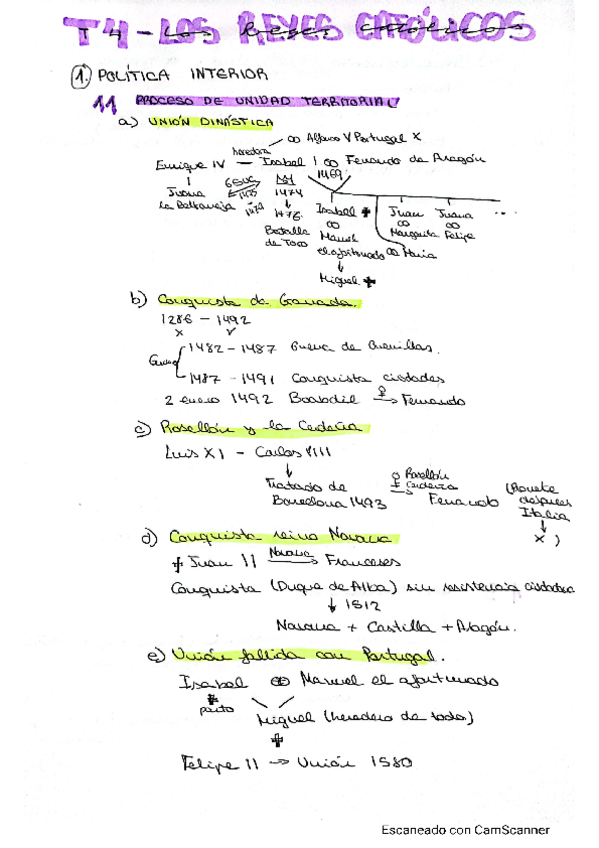 T4 - LOS REYES CATÓLICOS
1. POLÍTICA INTERIOR
1.1 PROCESO DE UNIDAD TERRITORIAL
a) UNIÓN DINÁSTICA
∞ Alfonso V Portugal X
heredera
Enrique IV — Isabel I ∞ Fernando de Aragón
1469
Juana la Beltraneja
1475
1479
1474
1476
Batalla de Toro
Isabel ✝ ∞ Manuel el afortunado ∞ María
Juan ∞ Margarita
Juana ∞ Felipe
...
Miguel ✝
b) Conquista de Granada.
1286 — 1492
x v
Guerra
1482 — 1487 Guerra de Guerrillas.
1487 — 1491 Conquista ciudades
2 enero 1492 Boabdil → Fernando
c) Rosellón y la Cerdaña
Luis XI — Carlos VIII
↓
Tratado de Barcelona 1493
Rosellón
Cerdaña
→ Fernando
después Italia
↓
x )
d) Conquista reino Navarra
✝ Juan II Navarra → Franceses
Conquista (Duque de Alba) sin resistencia ciudadana
↓ 1512
Navarra + Castilla + Aragón.
e) Unión fallida con Portugal.
Isabel ∞ Manuel el afortunado
✝
parto
Miguel (heredero de todo)
✝
Felipe II → Unión 1580
Escaneado con CamScanner